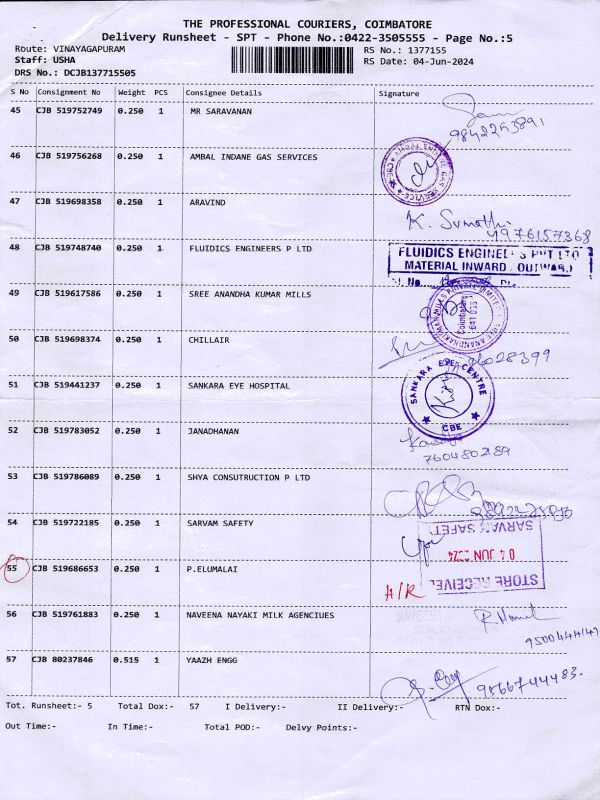 THE PROFESSIONAL COURIERS, COIMBATORE
Delivery Runsheet - SPT - Phone No.:0422-3505555 - Page No.:5
Route: VINAYAGAPURAM RS No.: 1377155
Staff: USHA RS Date: 04-Jun-2024
DRS No.: DCJB137715505
S No Consignment No Weight PCS Consignee Details Signature
45 CJB 519752749 0.250 1 MR SARAVANAN
9842253891
46 CJB 519756268 0.250 1 AMBAL INDANE GAS SERVICES
47 CJB 519698358 0.250 1 ARAVIND
K. Sumathi
4976157368
48 CJB 519748740 0.250 1 FLUIDICS ENGINEERS P LTD
FLUIDICS ENGINEERS PVT LTD
MATERIAL INWARD / OUTWARD
49 CJB 519617586 0.250 1 SREE ANANDHA KUMAR MILLS
50 CJB 519698374 0.250 1 CHILLAIR
51 CJB 519441237 0.250 1 SANKARA EYE HOSPITAL
SANKARA EYE CENTRE
CBE
52 CJB 519783052 0.250 1 JANADHANAN
7604802189
53 CJB 519786089 0.250 1 SHYA CONSUTRUCTION P LTD
54 CJB 519722185 0.250 1 SARVAM SAFETY
SARVAM SAFETY
04 JUN 2024
STORE RECEIVED
55 CJB 519686653 0.250 1 P.ELUMALAI
A/R
56 CJB 519761883 0.250 1 NAVEENA NAYAKI MILK AGENCIUES
9500444147
57 CJB 80237846 0.515 1 YAAZH ENGG
9566744483.
Tot. Runsheet:- 5 Total Dox:- 57 I Delivery:- II Delivery:- RTN Dox:-
Out Time:- In Time:- Total POD:- Delvy Points:-